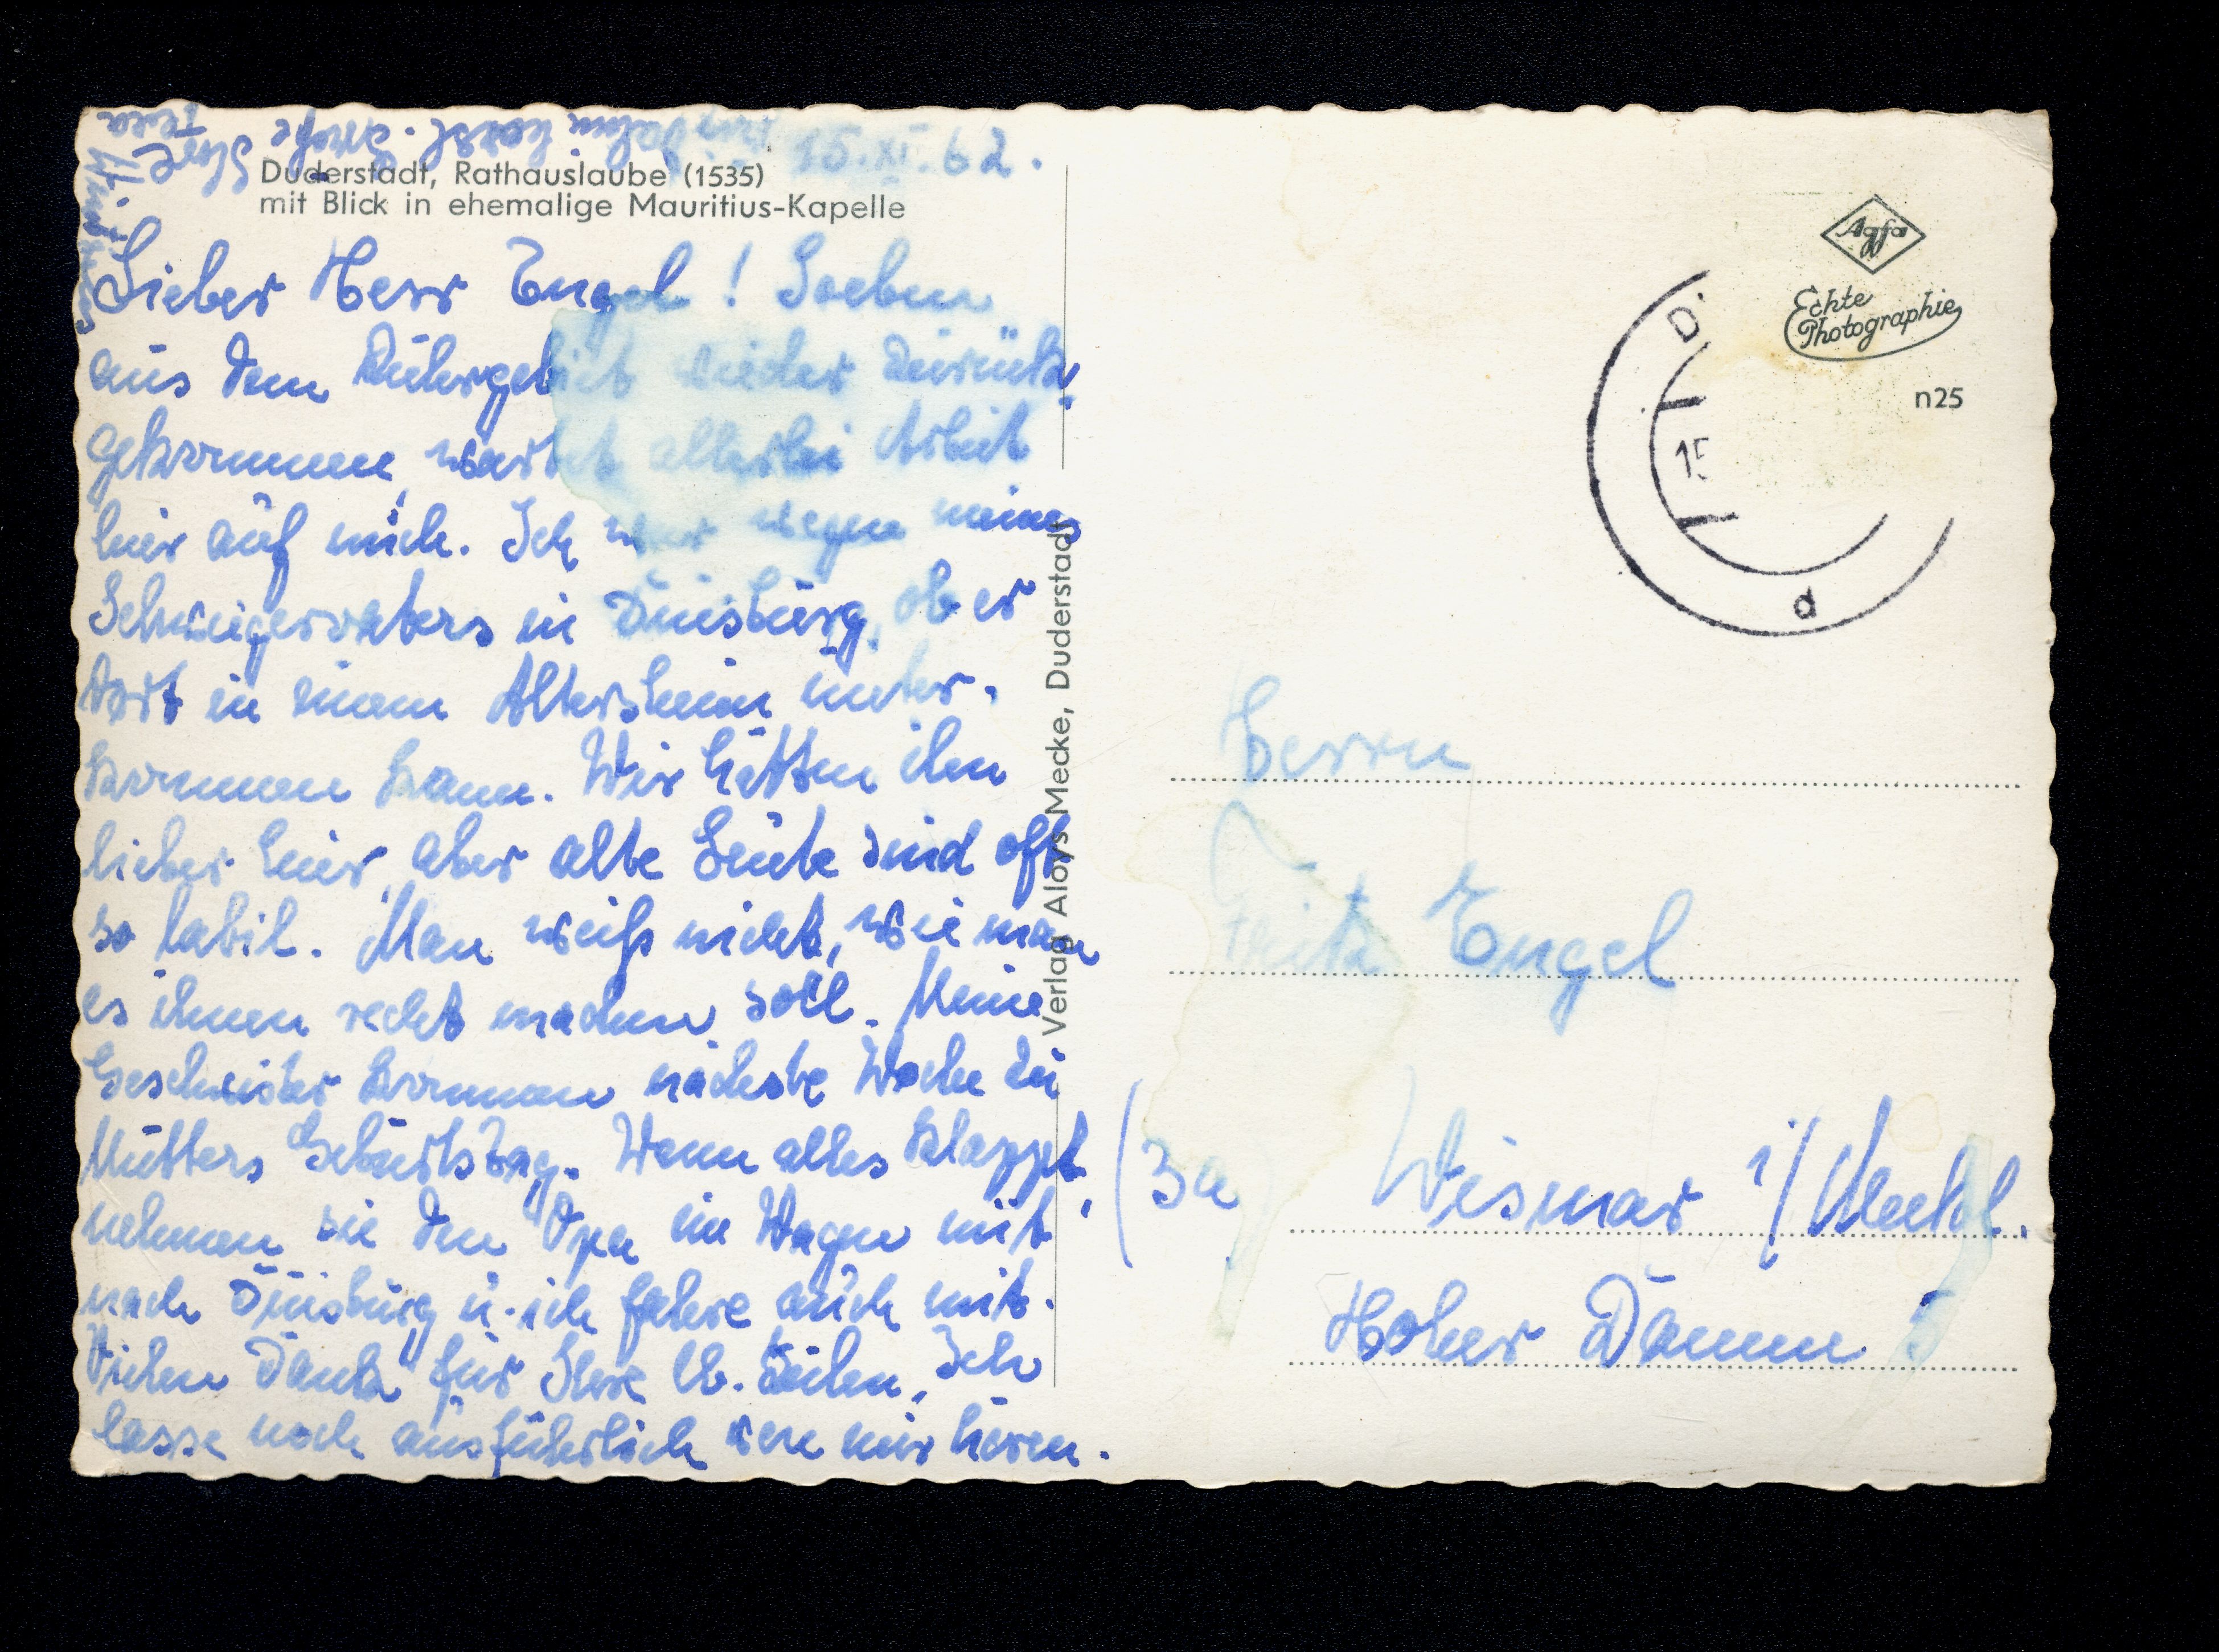 15.XI.62.
Duderstadt, Rathauslaube (1535)
mit Blick in ehemalige Mauritius-Kapelle
Lieber Herr Engel! Soeben
aus dem Ruhrgebiet wieder zurück
gekommen, wartet allerlei Arbeit
hier auf mich. Ich war wegen meines
Schwiegervaters in Duisburg, ob er
dort in einem Altersheim unter-
kommen kann. Wir hätten ihn
lieber hier, aber alte Leute sind oft
so labil. Man weiß nicht, wie man
es ihnen recht machen soll. Meine
Geschwister kommen nächste Woche zu
Mutters Geburtstag. Wenn alles klappt,
nehmen sie den Opa im Wagen mit
nach Duisburg u. ich fahre auch mit.
Vielen Dank für Ihre lb. Zeilen, Ich
lasse noch ausführlich von mir hören.
herzl. Grüße Ihre
Verlag Aloys Mecke, Duderstadt
Agfa
Echte
Photographie
n25
D
15
d
Herrn
Fritz Engel
(3a Wismar i/Meckl.
Hoher Damm 5